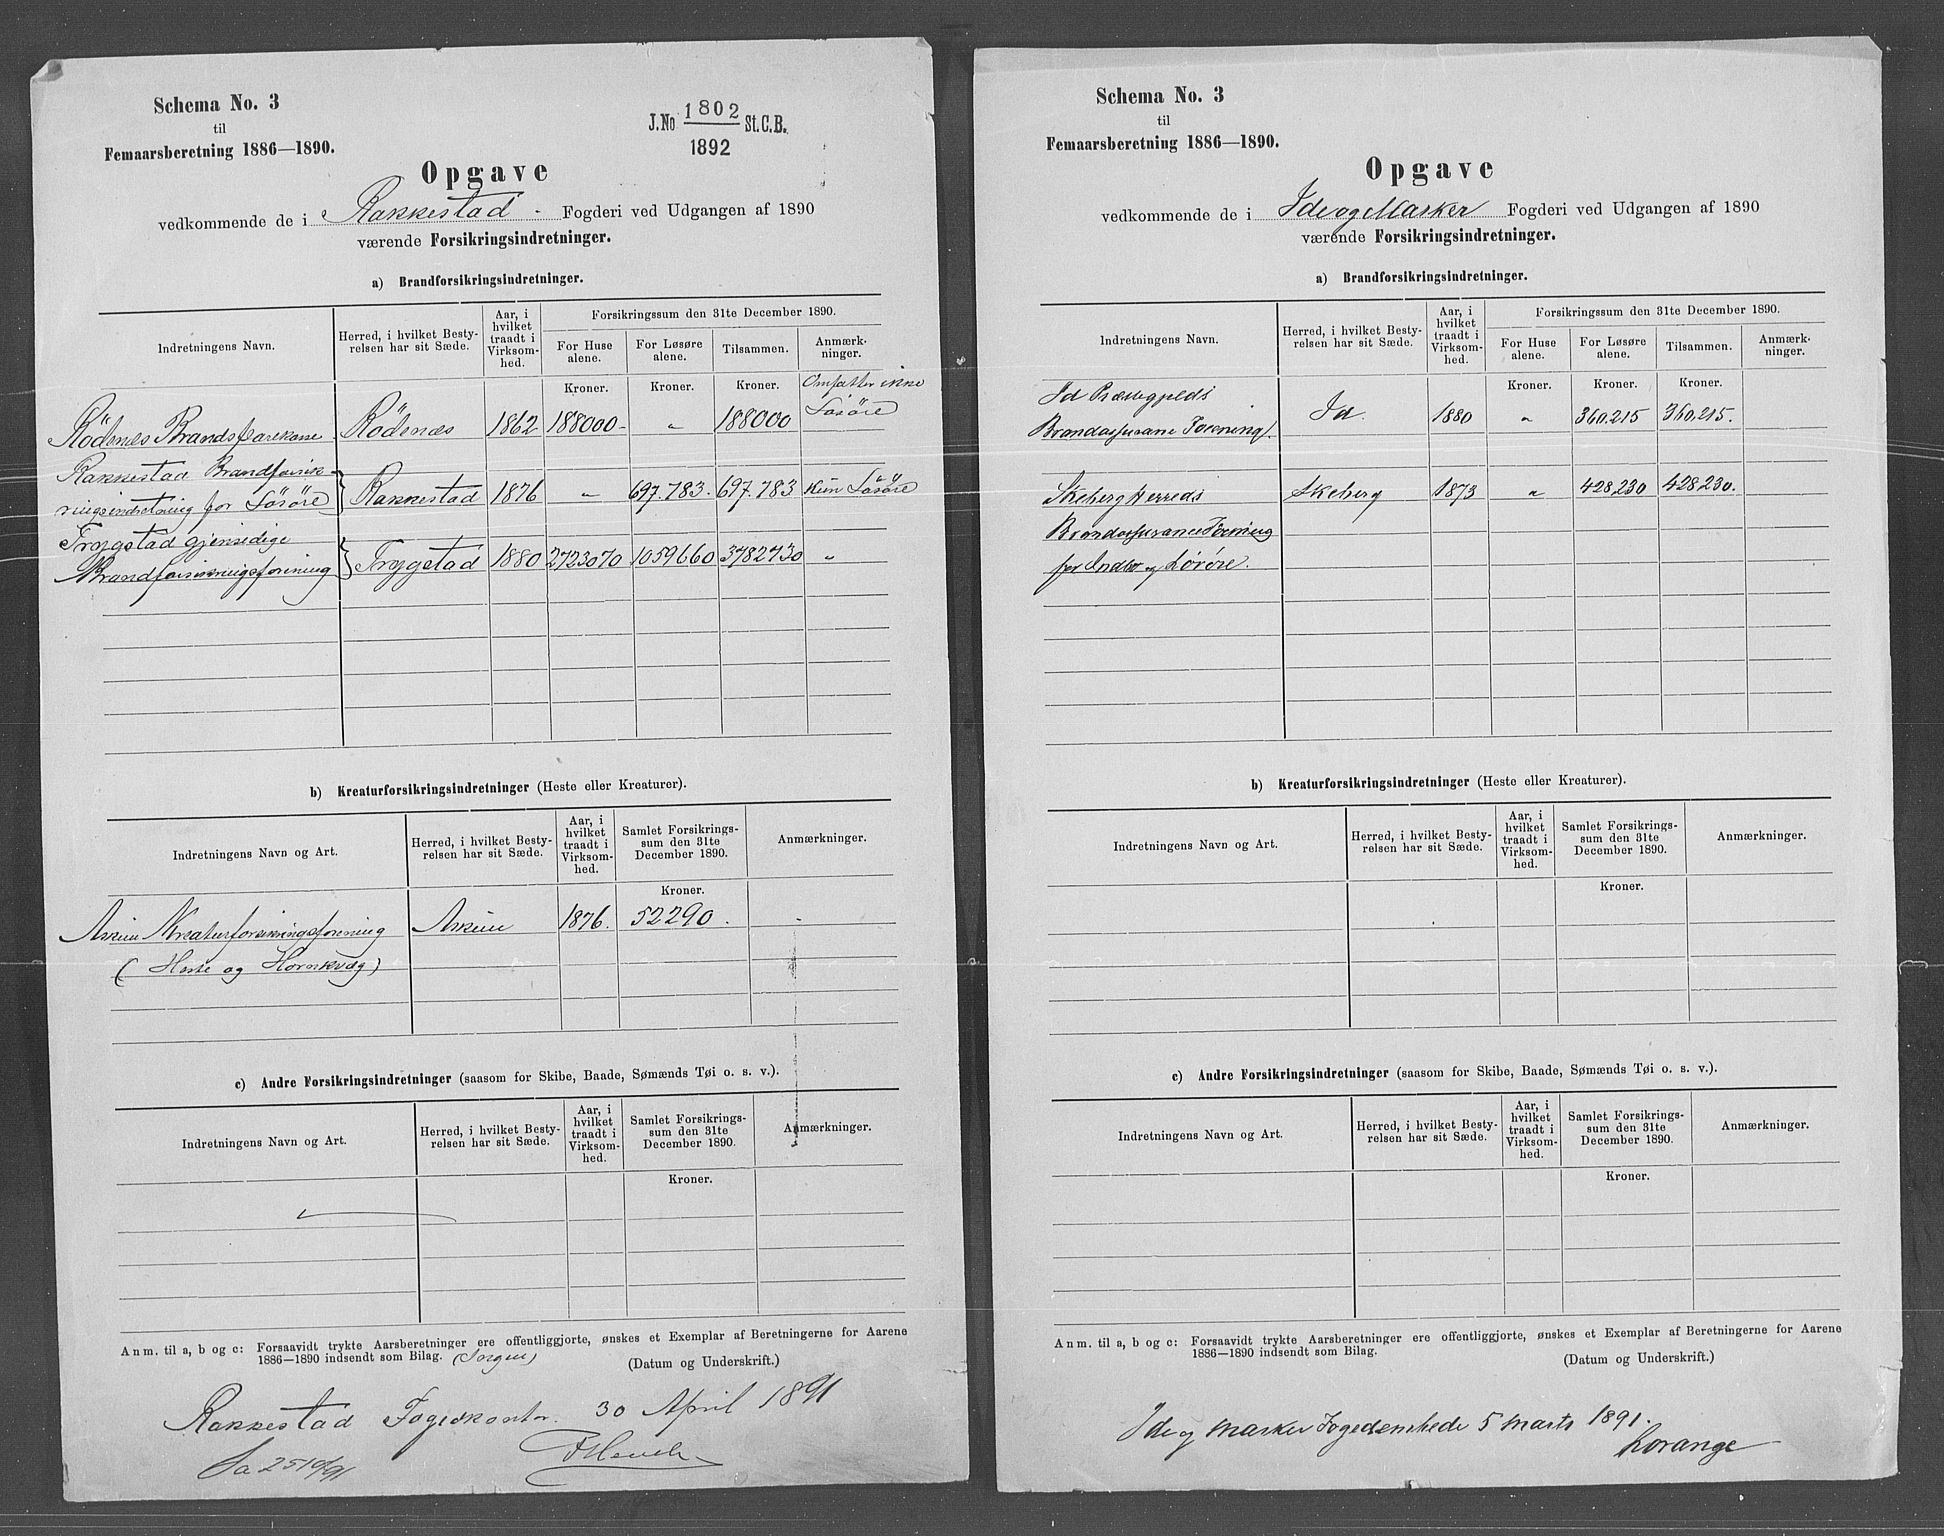 Schema No. 3
til
Femaarsberetning 1886—1890.
J.No 1802 St.C.B.
1892
Opgave
vedkommende de i Rakkestad. Fogderi ved Udgangen af 1890
værende Forsikringsindretninger.
a) Brandforsikringsindretninger.
Indretningens Navn.
Herred, i hvilket Besty-
relsen har sit Sæde.
Aar, i
hvilket
traadt i
Virksom-
hed.
Forsikringssum den 31te December 1890.
For Huse
alene.
For Løsøre
alene.
Tilsammen.
Anmærk-
ninger.
Kroner. Kroner. Kroner. Omfatter ikke
Rödenæs Brandskarekasse Rödenæs 1862 188000 - „ 188000 Lösöre
Rakkestad Brandforsik-
ringsindretning for Lösöre } Rakkestad 1876 „ 697.783. 697.783 Kun Lösöre
Trygstad gjensidige
Brandforsikringsforening } Trygstad 1880 2723070 1059660 3782730 „
b) Kreaturforsikringsindretninger (Heste eller Kreaturer).
Indretningens Navn og Art.
Herred, i hvilket Besty-
relsen har sit Sæde.
Aar, i
hvilket
traadt i
Virksom-
hed.
Samlet Forsikrings-
sum den 31te
December 1890.
Anmærkninger.
Kroner.
Askim Kreaturforsikringsforening Askim 1876. 52290.
(Heste og Hornkvæg)
c) Andre Forsikringsindretninger (saasom for Skibe, Baade, Sømænds Tøi o. s. v.).
Indretningens Navn og Art.
Herred, i hvilket Besty-
relsen har sit Sæde.
Aar, i
hvilket
traadt i
Virksom-
hed.
Samlet Forsikrings-
sum den 31te
December 1890.
Anmærkninger.
Kroner.
Anm. til a, b og c: Forsaavidt trykte Aarsberetninger ere offentliggjorte, ønskes et Exemplar af Beretningerne for Aarene
1886—1890 indsendt som Bilag. (Ingen)
(Datum og Underskrift.)
Rakkestad Fogedkontor. 30 April 1891
Schema No. 3
til
Femaarsberetning 1886—1890.
Opgave
vedkommende de i Ide og Marker Fogderi ved Udgangen af 1890
værende Forsikringsindretninger.
a) Brandforsikringsindretninger.
Indretningens Navn.
Herred, i hvilket Besty-
relsen har sit Sæde.
Aar, i
hvilket
traadt i
Virksom-
hed.
Forsikringssum den 31te December 1890.
For Huse
alene.
For Løsøre
alene.
Tilsammen.
Anmærk-
ninger.
Kroner. Kroner. Kroner.
Id Præstegjelds
Brandassurance Forening. Id. 1880 „ 360.215 360.215.
Skeberg Herreds Skeberg 1873 „ 428.230 428.230.
Brandassurance Forening
for Indbo og Lösöre.
b) Kreaturforsikringsindretninger (Heste eller Kreaturer).
Indretningens Navn og Art.
Herred, i hvilket Besty-
relsen har sit Sæde.
Aar, i
hvilket
traadt i
Virksom-
hed.
Samlet Forsikrings-
sum den 31te
December 1890.
Anmærkninger.
Kroner.
c) Andre Forsikringsindretninger (saasom for Skibe, Baade, Sømænds Tøi o. s. v.).
Indretningens Navn og Art.
Herred, i hvilket Besty-
relsen har sit Sæde.
Aar, i
hvilket
traadt i
Virksom-
hed.
Samlet Forsikrings-
sum den 31te
December 1890.
Anmærkninger.
Kroner.
Anm. til a, b og c: Forsaavidt trykte Aarsberetninger ere offentliggjorte, ønskes et Exemplar af Beretningerne for Aarene
1886—1890 indsendt som Bilag.
(Datum og Underskrift.)
Ide og Marker Fogedembede 5 Marts 1891.
Lorange